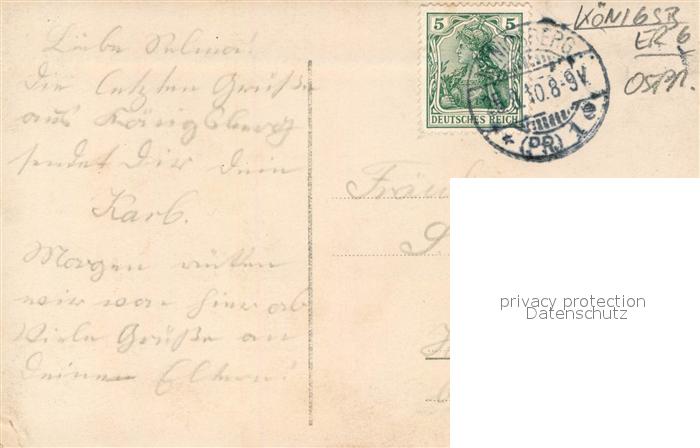 Liebe Selma!
Die letzten Grüße
aus Königsberg
sendet Dir Dein
Karl.
Morgen rücken
wir von hier ab
Viele Grüße an
Deine Eltern!
5 5
DEUTSCHES REICH
10.8-9V.
* (PR) 1
KÖNIGSB
ER 6
OSTPR.
Fräul
S
privacy protection
Datenschutz